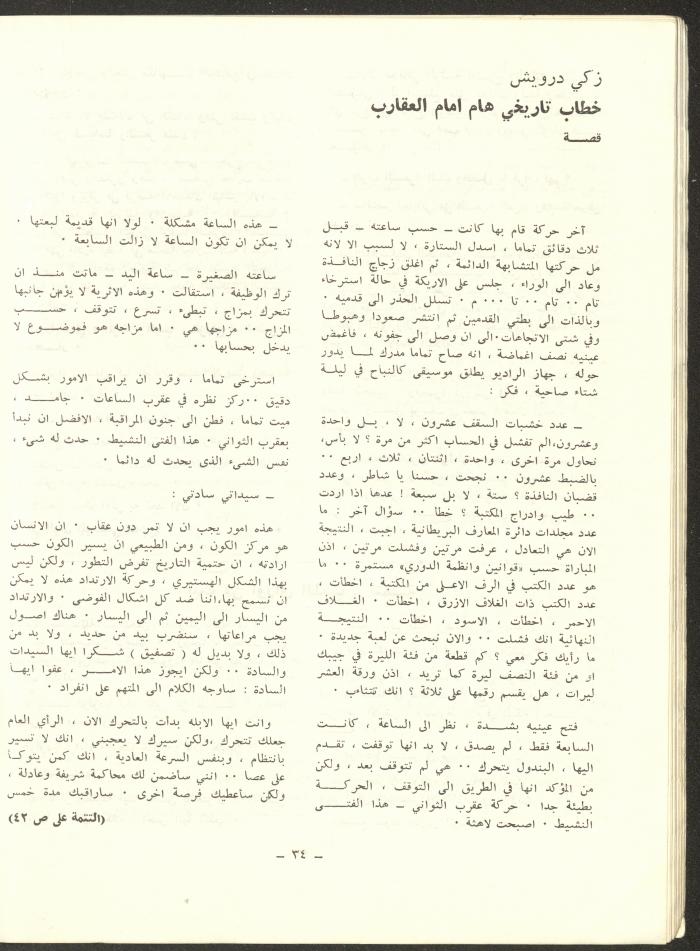 زكي درويش
خطاب تاريخي هام امام العقارب
قصــــة
آخر حركة قام بها كانت ــ حسب ساعته ــ قبــل
ثلاث دقائق تماما ، اسدل الستارة ، لا لسبب الا لانه
مل حركتها المتشابهة الدائمة ، ثم اغلق زجاج النافــذة
وعاد الى الوراء ، جلس على الاريكة في حالة استرخاء
تام ٠٠ تام ٠٠ تا ٠٠٠ م ٠ تسلل الخدر الى قدميه ٠
وبالذات الى بطني القدمين ثم انتشر صعودا وهبوطــا
وفي شتى الاتجاهات٠الى ان وصل الى جفونه ، فاغمض
عينيه نصف اغماضة ، انه صاح تماما مدرك لمــا يدور
حوله ، جهاز الراديو يطلق موسيقى كالنباح في ليلــة
شتاء صاحية ، فكر :
ــ عدد خشبات السقف عشرون ، لا ، بــل واحدة
وعشرون،الم تفشل في الحساب اكثر من مرة ؟ لا بأس،
نحاول مرة اخرى ، واحدة ، اثنتان ، ثلاث ، اربع ٠٠
بالضبط عشرون ٠٠ نجحت ، حسنا يا شاطر ، وعدد
قضبان النافذة ؟ ستة ، لا بل سبعة ! عدها اذا اردت
٠٠ طيب وادراج المكتبة ؟ خطا ٠٠ سؤال آخر : ما
عدد مجلدات دائرة المعارف البريطانية ، اجبت ، النتيجة
الان هي التعادل ، عرفت مرتين وفشلت مرتين ، اذن
المباراة حسب «قوانين وانظمة الدوري» مستمرة ٠٠ ما
هو عدد الكتب في الرف الاعلــى من المكتبة ، اخطات ،
عدد الكتب ذات الغلاف الازرق ، اخطات ٠ الغــلاف
الاحمر ، اخطات ، الاسود ، اخطات ٠٠ النتيجــة
النهائية انك فشلت ٠٠ والان نبحث عن لعبة جديدة ٠
ما رأيك فكر معي ؟ كم قطعة من فئة الليرة في جيبك
او من فئة النصف ليرة كما تريد ، اذن ورقة العشر
ليرات ، هل يقسم رقمها على ثلاثة ؟ انك تتثاءب ٠
فتح عينيه بشــــدة ، نظر الى الساعة ، كانــت
السابعة فقط ، لم يصدق ، لا بد انها توقفت ، تقــدم
اليها ، البندول يتحرك ٠٠ هي لم تتوقف بعد ، ولكن
من المؤكد انها في الطريق الى التوقف ، الحركــــة
بطيئة جدا ٠ حركة عقرب الثواني ــ هذا الفتــــى
النشيط ٠ اصبحت لاهثة ٠
ــ هذه الساعة مشكلة ٠ لولا انها قديمة لبعتها ٠
لا يمكن ان تكون الساعة لا زالت السابعة ٠
ساعته الصغيرة ــ ساعة اليد ــ ماتت منــــذ ان
ترك الوظيفة ، استقالت ٠ وهذه الاثرية لا يؤمن جانبها
تتحرك بمزاج ، تبطىء ، تسرع ، تتوقف ، حســــب
المزاج ٠٠ مزاجها هي ٠ اما مزاجه هو فموضــــوع لا
يدخل بحسابها ٠٠
استرخى تماما ، وقرر ان يراقب الامور بشــكل
دقيق ٠٠ركز نظره في عقرب الساعات ٠ جامــــد ،
ميت تماما ، فطن الى جنون المراقبة ، الافضل ان نبدأ
بعقرب الثواني ٠ هذا الفتى النشيط ٠ حدث له شىء ،
نفس الشىء الذي يحدث له دائما ٠
ــ سيداتي سادتي :
هذه امور يجب ان لا تمر دون عقاب ٠ ان الانسان
هو مركز الكون ، ومن الطبيعي ان يسير الكون حسب
ارادته ، ان حتمية التاريخ تفرض التطور ، ولكن ليس
بهذا الشكل الهستيري ، وحركة الارتداد هذه لا يمكن
ان نسمح بها،اننا ضد كل اشكال الفوضى ٠ والارتداد
من اليسار الى اليمين ثم الى اليسار ٠ هناك اصــول
يجب مراعاتها ، سنضرب بيد من حديد ، ولا بد من
ذلك ، ولا بديل له ( تصفيق ) شــكرا ايها السيدات
والسادة ٠٠ ولكن ايجوز هذا الامــــر ، عفوا ايهــا
السادة : ساوجه الكلام الى المتهم على انفراد ٠
وانت ايها الابله بدأت بالتحرك الان ، الرأي العام
جعلك تتحرك ،ولكن سيرك لا يعجبني ، انك لا تسير
بانتظام ، وبنفس السرعة العادية ، انك كمن يتوكــأ
على عصا ٠٠ انني سأضمن لك محاكمة شريفة وعادلة ،
ولكن سأعطيك فرصة اخرى ٠ ساراقبك مدة خمس
(التتمة على ص ٤٢)
ــ ٣٤ ــ